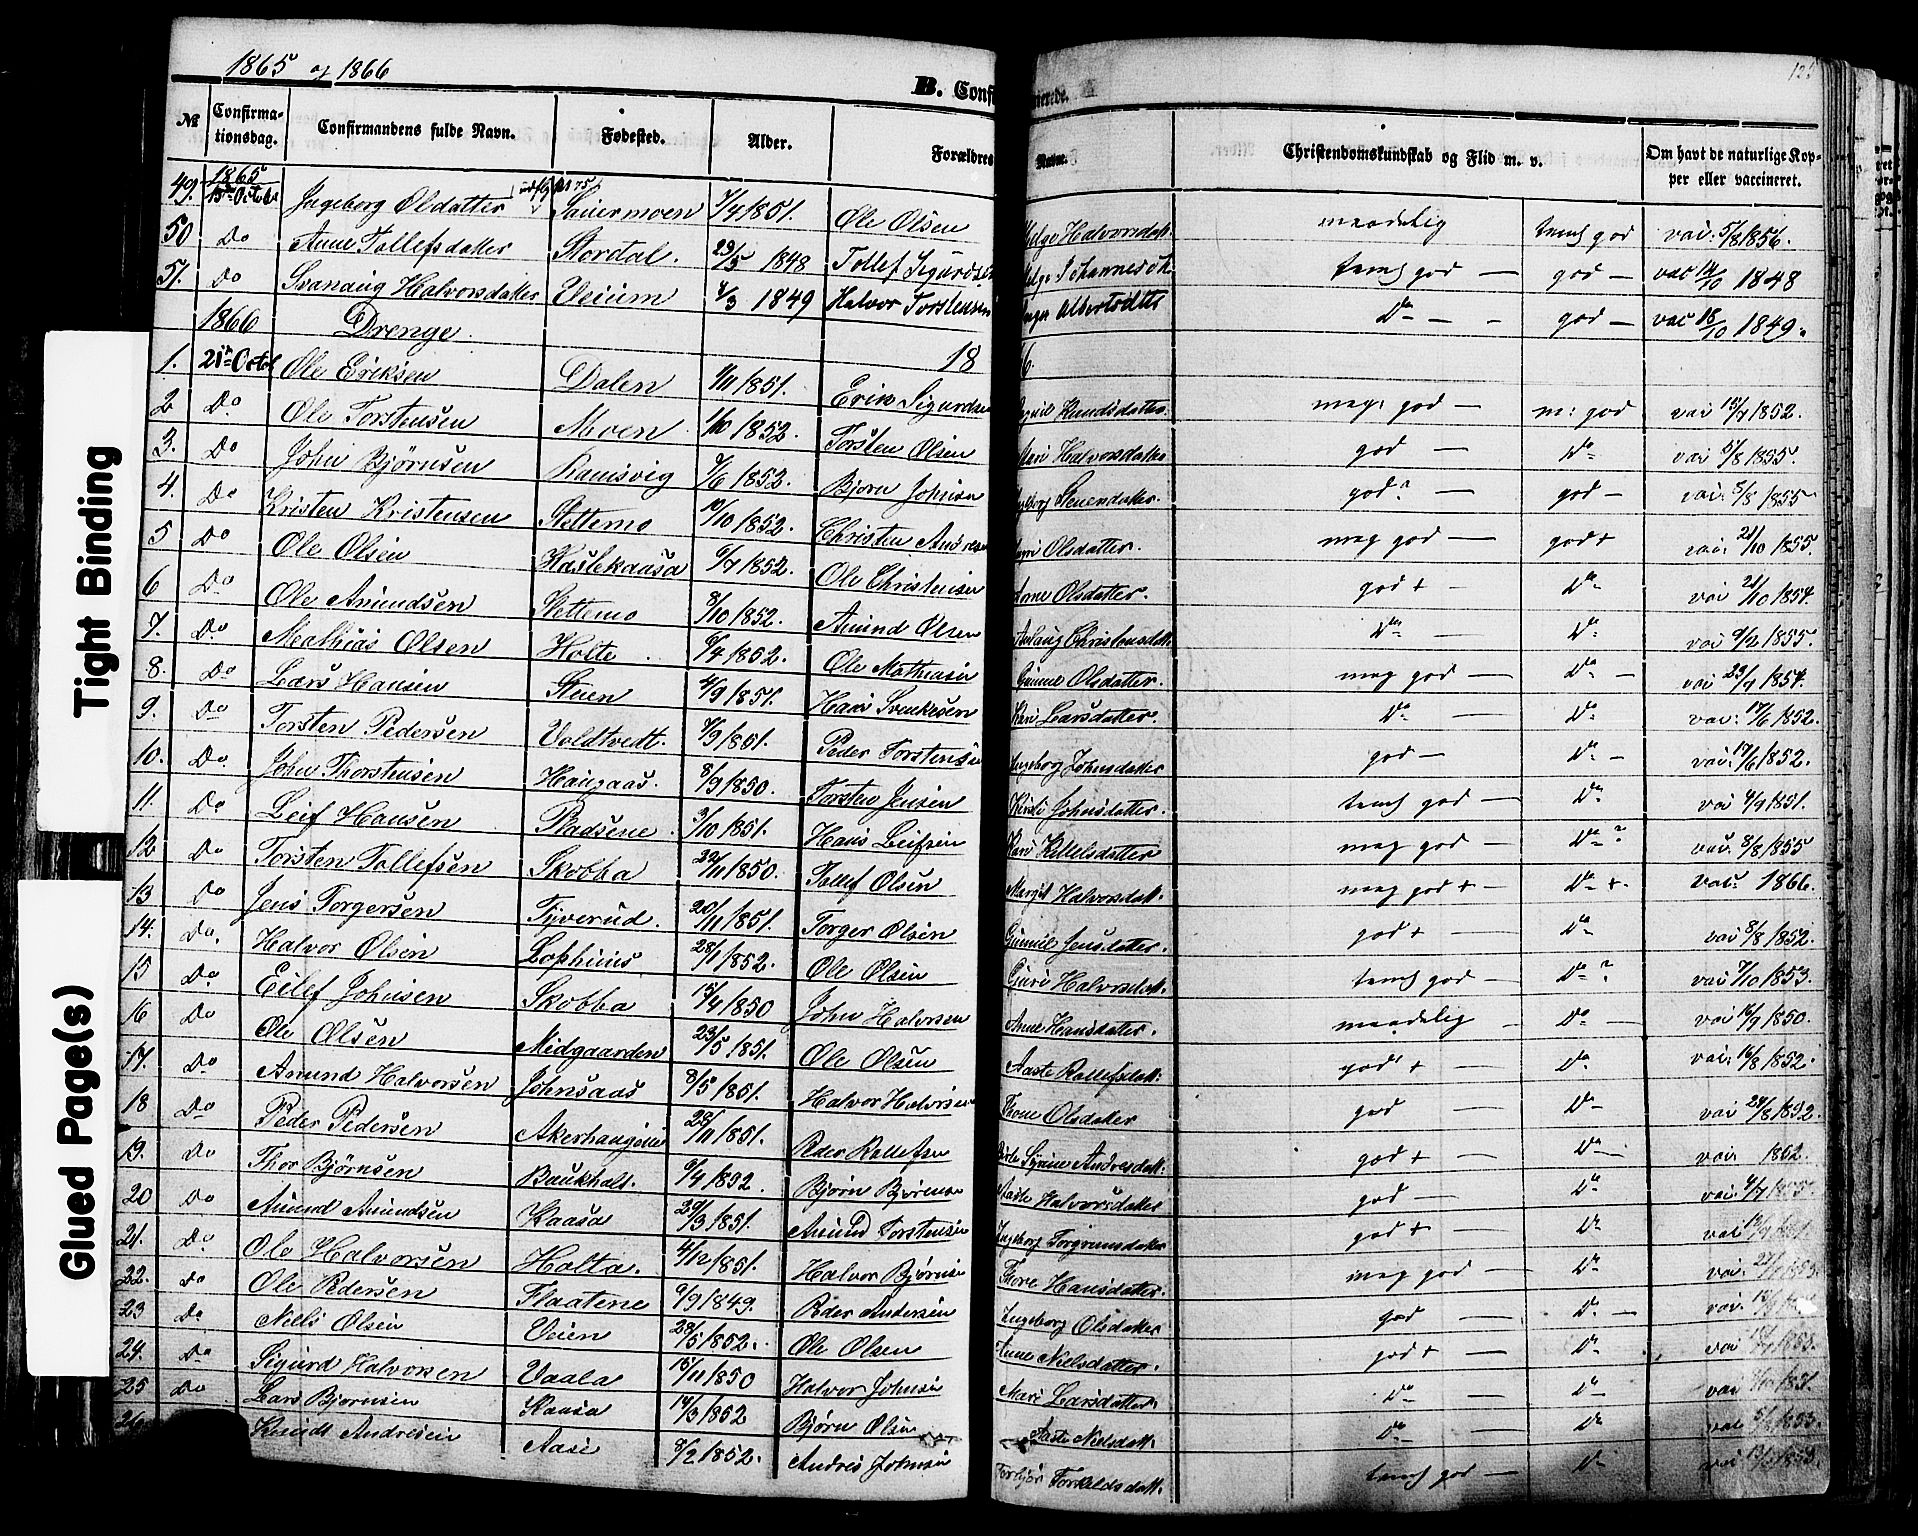 1865 og 1866
B. Confi
merede.
№ Confirma-tionsdag. Confirmandens fulde Navn. Fødested. Alder. Forældres Navn. Christendomskundskab og Flid m. v. Om havt de naturlige Kop-per eller vaccineret.
1865
49. 15de Octob Ingeborg Olsdatter Sauermoen 7/4 1851. Ole Olsen Helge Halvorsdatt. maadelig temf god vac: 5/8 1856.
50 Do Anne Tollefsdatter Stordal. 23/5 1848 Tollef Sigurdsen Helge Johannesd. temf god — god — vac 14/10 1848
51. Do Svanaug Halvorsdatter Veium 4/3 1849 Halvor Torstensen Albertsdatt Do — god — vac 18/10 1849.
1866 Drenge. 18 6.
1. 21de Octob Ole Eriksen Dalen 1/11 1851. Erik Sigurdsen Knudsdatter. meg: god — m: god vac 13/7 1852.
2 Do Ole Torstensen Moen 1/10 1852. Torsten Olsen Mari Halvorsdatter god — Do vac 5/8 1855.
3. Do John Bjørnsen Ramsvig 4/6 1852. Bjørn Johnsen Ingeborg Steuensdatter. god? — god — vac: 5/8 1855
4. Do Kristen Kristensen Stettemo 19/10 1852. Christen Andresen Olsdatter. meg god — god + vac: 21/10 1855.
5 Do Ole Olsen Haslekaasa 6/7 1852. Ole Christensen Anne Olsdatter. god + — Do vac 21/10 1854.
6 Do Ole Amundsen Stettemo 8/10 1852. Amund Olsen Aslaug Christensdatt. Do — Do vac 9/2 1855.
7. Do Mathias Olsen Holte 6/4 1852. Ole Mathiasen Gunne Olsdatter. meg god — Do — vac 23/9 1854.
8. Do Lars Hansen Steen 4/9 1851. Hans Svenkesen Kari Larsdatter. Do — Do vac: 17/6 1852.
9. Do Torsten Pedersen Voldtvedt. 4/9 1851. Peder Torstensen Ingeborg Johnsdatter god — Do — vac: 17/6 1852.
10. Do John Thorstensen Haugaas. 8/9 1850. Torsten Jensen Kirsti Johnsdatter. temf god — Do vac 4/9 1851.
11. Do Leif Hansen Pladsene. 3/10 1851. Hans Leifsen Kari Kittelsdatter meg god — Do ? vac. 8/8 1855
12 Do Torsten Tollefsen Skobba 22/11 1850. Tollef Olsen Margit Halvorsdatt. meg god + — Do + vac: 1866.
13 Do Jens Torgersen Tyverud. 20/11 1851. Torger Olsen Gunnil Jensdatter. god + — Do vac 8/8 1852.
14. Do. Halvor Olsen Lophuus 28/1 1852. Ole Olsen Guri Halvorsdatt. temf god — Do ? vac 7/10 1853.
15 Do Eilef Johnsen Skobba 15/4 1850 John Halvorsen Anne Hansdatter. maadelig — Do — vac 16/9 1850.
16 Do Ole Olsen Midgaarden 23/5 1851. Ole Olsen Aaste Rollefsdatt. god + — Do vac: 16/8 1852.
17. Do Amund Halvorsen Johnsaas 8/5 1851. Halvor Halvorsen Thone Olsdatter god — Do — vac 24/8 1852.
18 Do Peder Pedersen Akerhaugene 28/11 1851. Peder Rollefsen Andresdatt. god + — Do — vac 1852.
19. Do Thor Bjørnsen Baukholt. 6/4 1852. Bjørn Bjørnsen Aaste Halvorsdatter god — Do vac:
20 Do Amund Amundsen Kaasa 29/3 1851. Amund Torstensen Ingeborg Torgrimsdatter god + — Do vac
21. Do Ole Halvorsen Holta. 4/12 1851. Halvor Bjørnsen Thore Hansdatter. meg god — Do vac:
22. Do Ole Pedersen Flaatene 6/9 1849. Peder Andersen Ingeborg Olsdatter god — Do — vac.
23 Do Niels Olsen Veien 28/5 1852. Ole Olsen Anne Nielsdatter. god + — Do vac
24. Do Sigurd Halvorsen Vaala 15/11 1850 Halvor Johnsen Mari Larsdatter. Do — Do vac
25 Do Lars Bjørnsen Kaasa 14/3 1852 Bjørn Olsen Aaste Nielsdatt. Do — Do vac
26 Knudt Andresen Aase 8/2 1852. Andres Johnsen Torbjør Torkildsdatt. temf god — Do vac
Tight Binding
Glued Page(s)